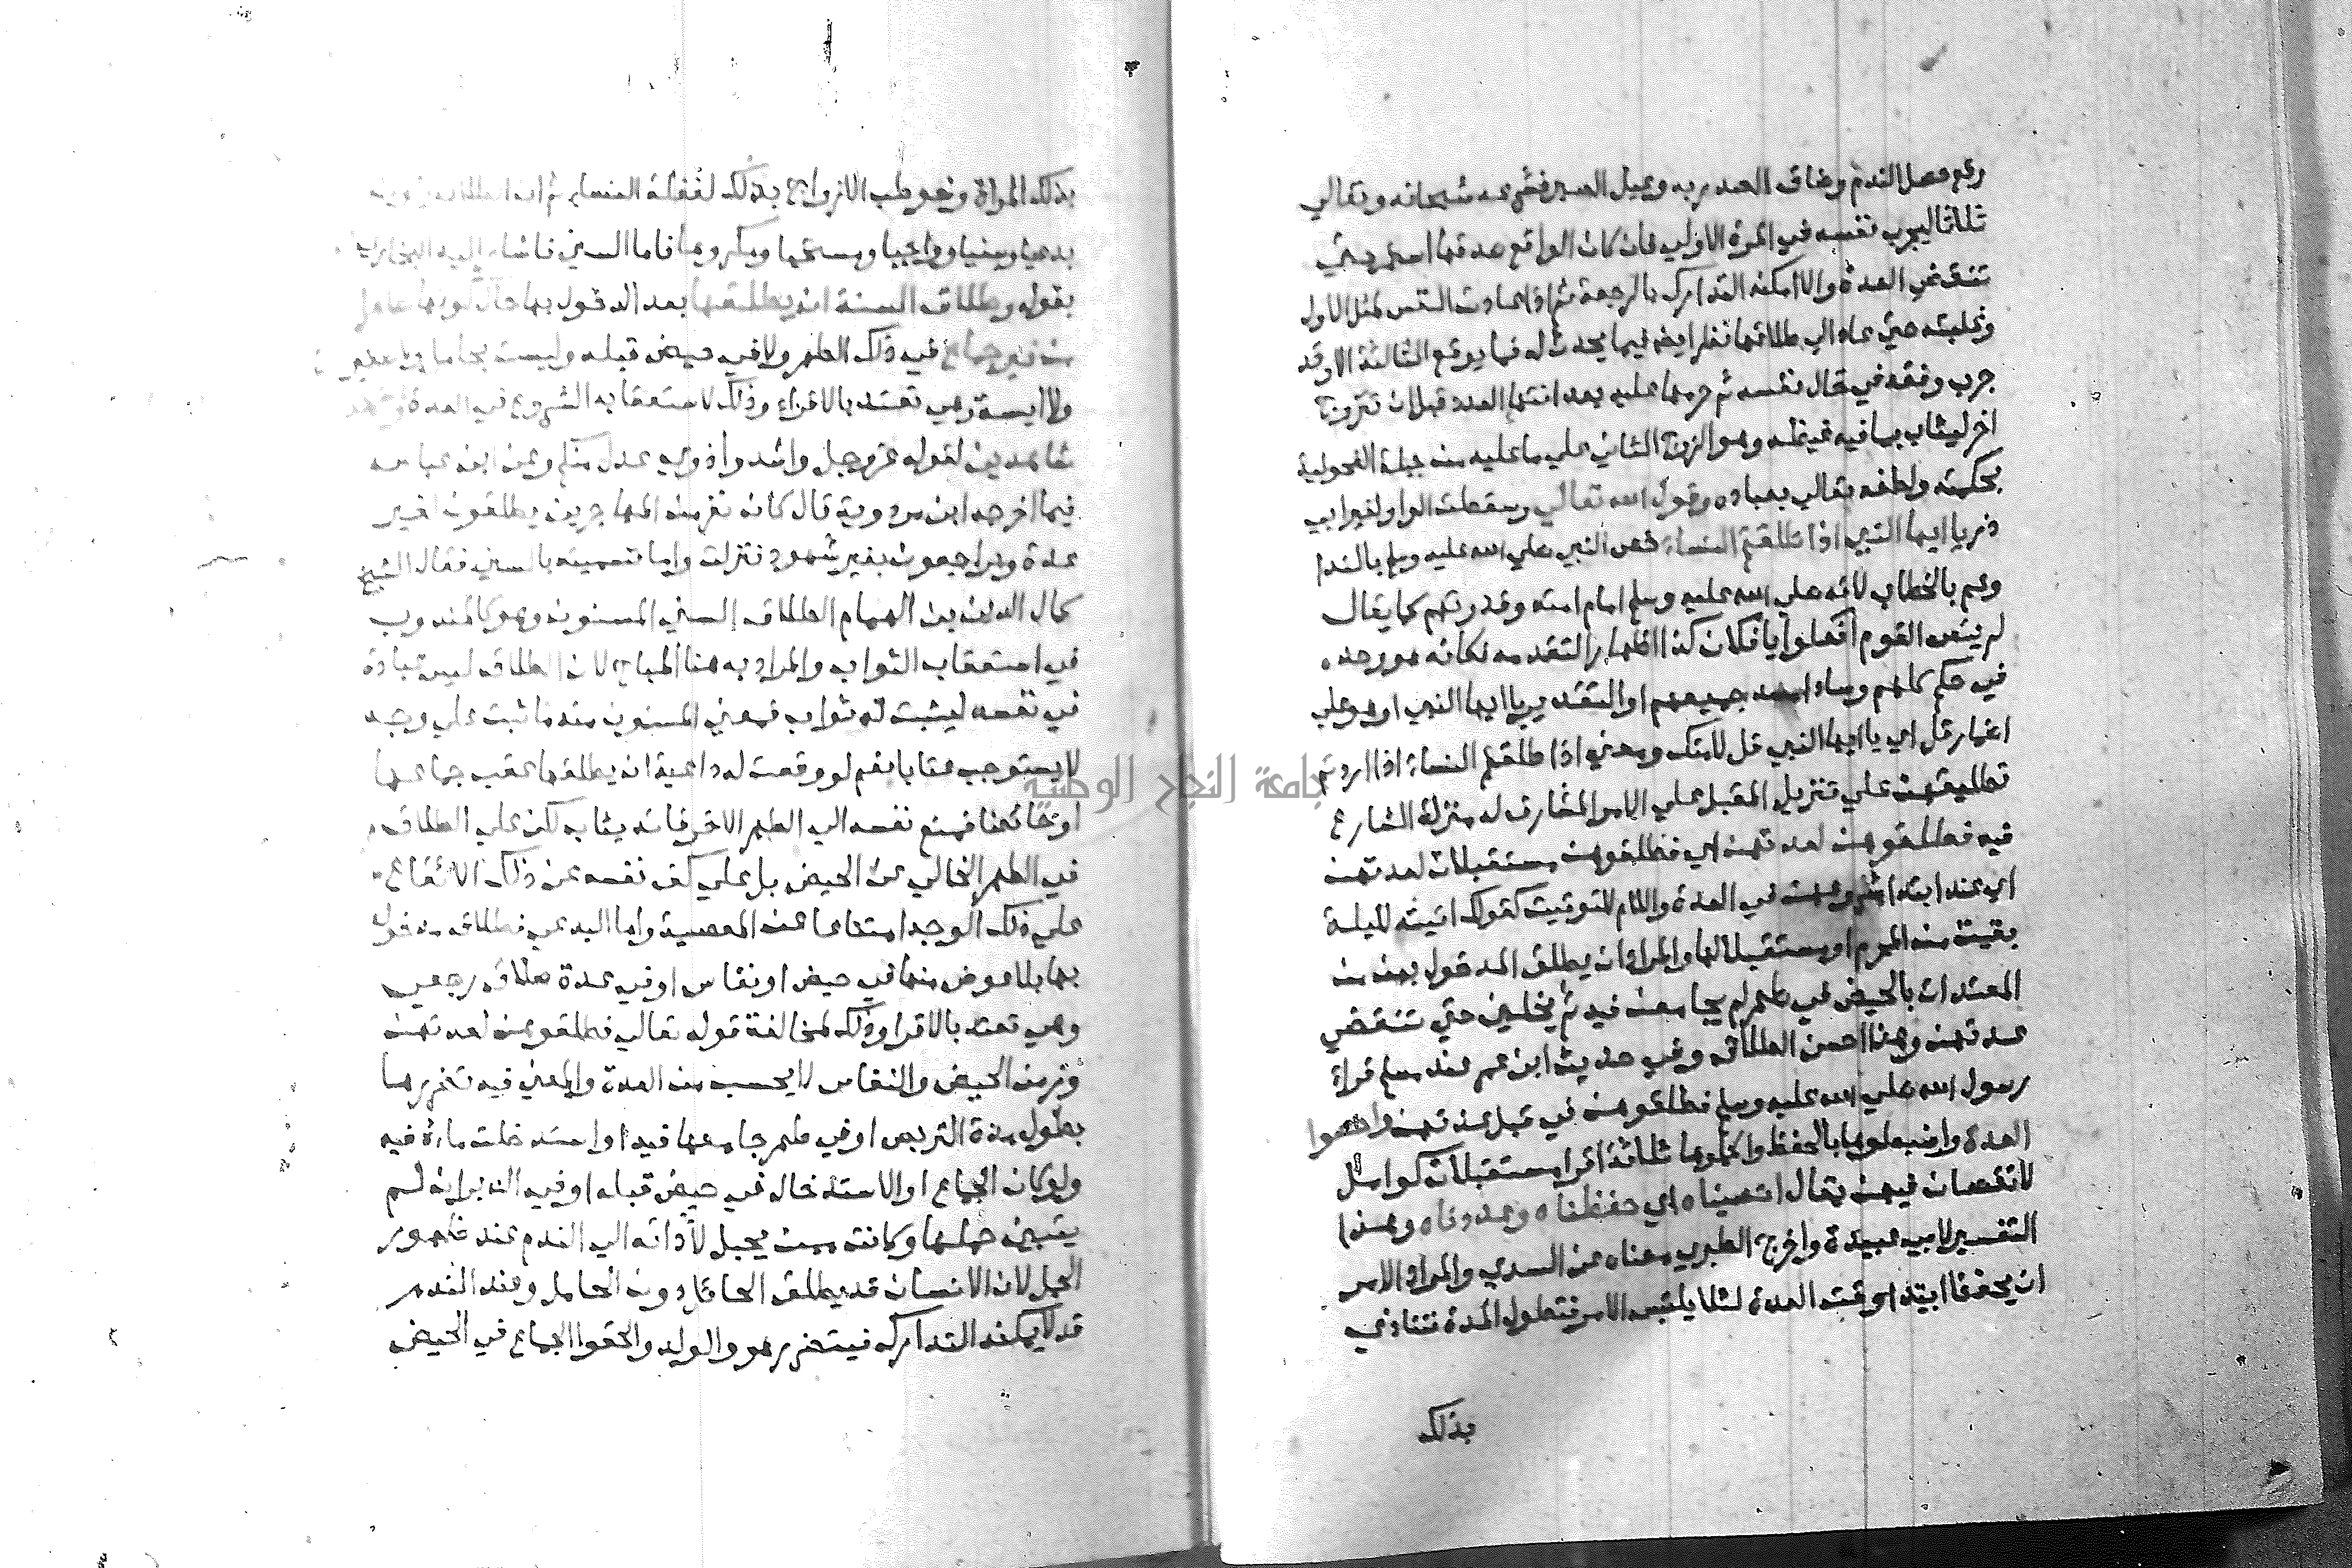 وقع حصل الندم وضاق الصدر به وعيل الصبر فشرعه سبحانه وتعالى
ثلاثا ليجرب نفسه في المرة الاولي فان كان الواقع صدقها استمر حتي
تنقضي العدة والا امكنه التدارك بالرجعة ثم اذا عادت النفس لمثل الاول
وغلبته حتي عاد الي طلاقها نظر ايضا فيما يحدث له فما يوقع الثالثة الا وقد
جرب وفقه في حال نفسه ثم حرمها عليه بعد انتها العدد قبل ان تتزوج
اخر ليثاب بما فيه غيظه وهو الزوج الثاني علي ما عليه من جبلة الفحولية
بحكمته ولطفه تعالي بعباده وقول الله تعالي وسقطت الواو لغير ابي
ذر يا ايها النبي اذا طلقتم النساء خص النبي صلي الله عليه وسلم بالندا
وعم بالخطاب لانه صلي الله عليه وسلم امام امته وقدوتهم كما يقال
لرئيس القوم افعلوا يا فلان كذا اظهارا لتقدمه فكانه هو وحده
في حكم كلهم وساد مسد جميعهم او التقدير يا ايها النبي او هو علي
اضمار قل اي يا ايها النبي قل لامتك ومعني اذا طلقتم النساء اذا اردتم
تطليقهن علي تنزيل المقبل علي الامر المشارف له منزلة الشارع
فيه فطلقوهن لعدتهن اي فطلقوهن مستقبلات لعدتهن
اي عند ابتدا شروعهن في العدة واللام للتوقيت كقولك اتيته لليلة
بقيت من المحرم او مستقبلا لها والمراد ان يطلق المدخول بهن من
المعتدات بالحيض في طهر لم يجامعن فيه ثم يخلين حتي تنقضي
عدتهن وهذا احسن الطلاق وفي حديث ابن عمر عند مسلم قراء
رسول الله صلي الله عليه وسلم فطلقوهن في قبل عدتهن واحصوا
العدة واضبطوها بالحفظ واكملوها ثلاثة اقرا مستقبلات كوامل
لا نقصان فيهن يقال احصيناه اي حفظناه وعددناه وهذا
التفسير لابي عبيدة واخرج الطبري معناه عن السدي والمراد الامر
ان يحفظ ابتدا وقت العدة لئلا يلتبس الامر فتطول المدة فتتاذي
بذلك
بذلك المراة وخوطب الازواج بذلك لغفلة النساء ثم ان الطلاق يكون
بدعيا وسنيا وواجبا ومستحبا ومكروها فاما السني فاشار اليه البخاري
بقوله وطلاق السنة ان يطلقها بعد الدخول بها حال كونها طاهرا
من غير جماع في ذلك الطهر ولا في حيض قبله وليست بحامل ولا صغيرة
ولا ايسة وهي تعتد بالاقراء وذلك لاستعقابه الشروع في العدة ويشهد
شاهدين لقوله عز وجل واشهدوا ذوي عدل منكم وعن ابن عباس
فيما اخرجه ابن مردوية قال كان نفر من المهاجرين يطلقون لغير
عدة ويراجعون بغير شهود فنزلت واما تسميته بالسني فقال الشيخ
كمال الدين بن الهمام الطلاق السني المسنون وهو كالمندوب
في استعقاب الثواب والمراد به هنا المباح لان الطلاق ليس عبادة
في نفسه ليثبت له ثواب فمعني المسنون منه ما ثبت علي وجه
لا يستوجب عتابا نعم لو وقعت له داعية ان يطلقها عقب جماعها
او حائضا فمنع نفسه الي الطهر الاخر فانه يثاب لكن علي الطلاق
في الطهر الخالي عن الحيض بل علي كف نفسه عن ذلك الايقاع
علي ذلك الوجه امتناعا عن المعصية واما البدعي فطلاق مدخول
بها بلا عوض منها في حيض او نفاس او في عدة طلاق رجعي
وهي تعتد بالاقرا وذلك لمخالفة قوله تعالي فطلقوهن لعدتهن
وزمن الحيض والنفاس لا يحسب من العدة والمعني فيه تضررها
بطول مدة التربص او في طهر جامعها فيه او استدخلت ماءه فيه
ولو كان الجماع او الاستدخال في حيض قبله او في الدبر ان لم
يتبين حملها وكانت ممن يحبل لادائه الي الندم عند ظهور
الحمل لان الانسان قد يطلق الحائل دون الحامل وعند الندم
قد لا يمكنه التدارك فيتضرر هو والولد والحقوا الجماع في الحيض
جامعة النجاح الوطنية